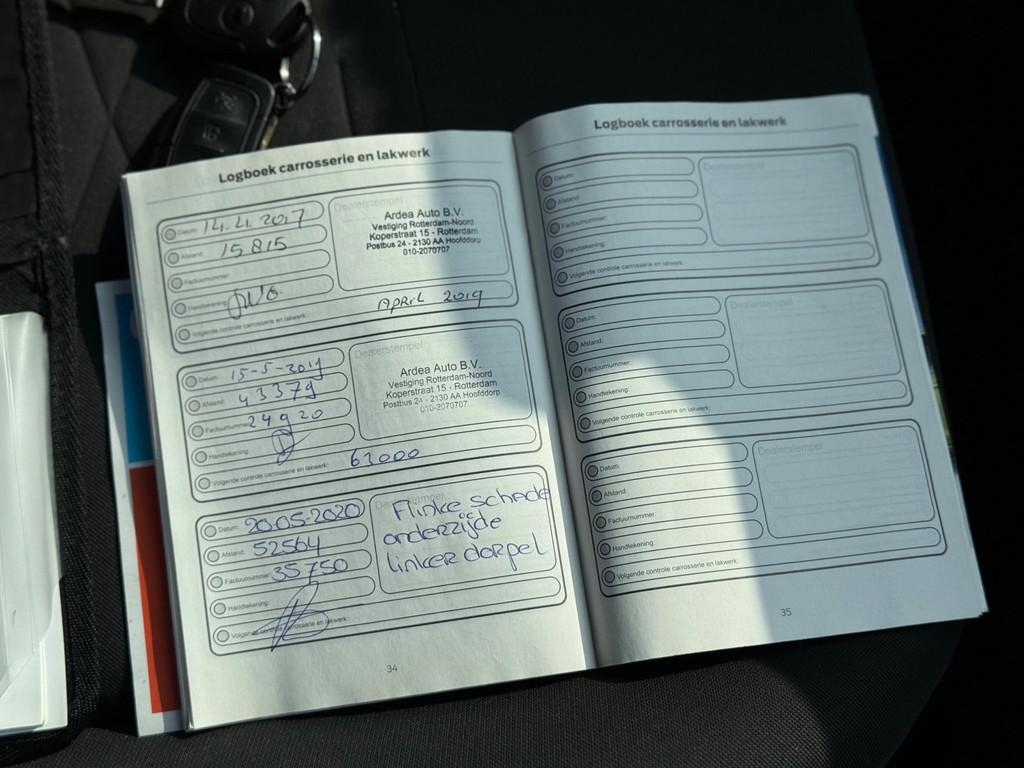 Logboek carrosserie en lakwerk
Datum: 14.4.2017
Afstand: 15.815
Factuurnummer:
Handtekening:
Volgende controle carrosserie en lakwerk: APRIL 2019
Dealerstempel
Ardea Auto B.V.
Vestiging Rotterdam-Noord
Koperstraat 15 - Rotterdam
Postbus 24 - 2130 AA Hoofddorp
010-2070707
Datum: 15-5-2019
Afstand: 43379
Factuurnummer: 24920
Handtekening:
Volgende controle carrosserie en lakwerk: 63000
Dealerstempel
Ardea Auto B.V.
Vestiging Rotterdam-Noord
Koperstraat 15 - Rotterdam
Postbus 24 - 2130 AA Hoofddorp
010-2070707
Datum: 20-05-2020
Afstand: 52564
Factuurnummer: 35750
Handtekening:
Volgende controle carrosserie en lakwerk:
Dealerstempel
Flinke schade
onderzijde
linker dorpel
34
Logboek carrosserie en lakwerk
Datum:
Afstand:
Factuurnummer:
Handtekening:
Volgende controle carrosserie en lakwerk:
Dealerstempel
Datum:
Afstand:
Factuurnummer:
Handtekening:
Volgende controle carrosserie en lakwerk:
Dealerstempel
Datum:
Afstand:
Factuurnummer:
Handtekening:
Volgende controle carrosserie en lakwerk:
Dealerstempel
35